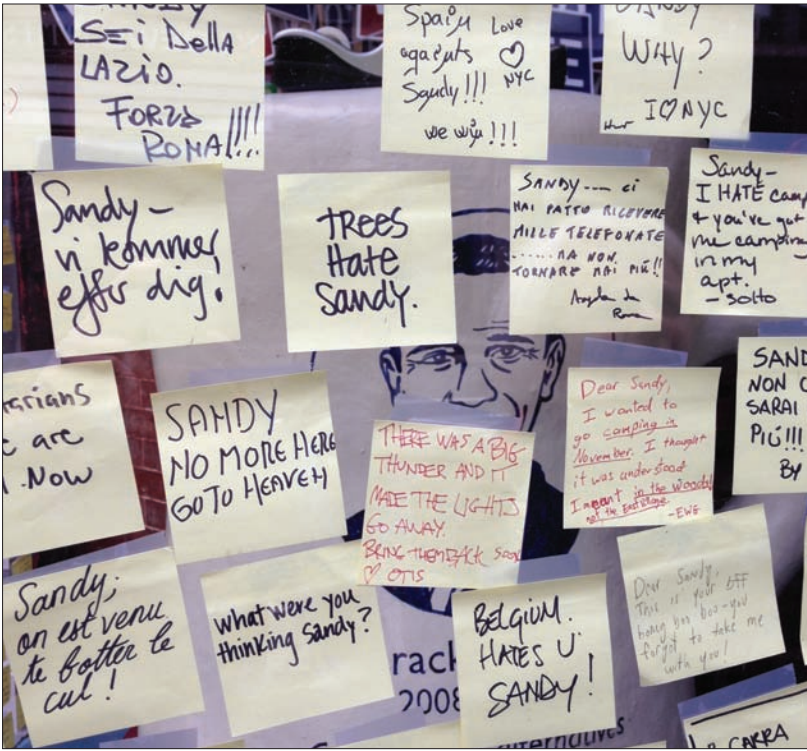 SEi DellA
LAZiO.
FORZA
ROMA!!!!
Spain Love
againts ♡
Sandy!!! NYC
we win !!!
SANDY
WHY?
I♡NYC
Sandy-
vi kommer
efter dig!
TREES
Hate
Sandy.
SANDY ---- ci
HAI FATTO RICEVERE
MILLE TELEFONATE
...... MA NON
TORNARE MAI PIÚ!!
Angela da
Roma
Sandy-
I HATE camp
& you've got
me camping
in my
apt.
- SoHo
arians
e are
. Now
SANDY
NO MORE HERE
GO TO HEAVEN
THERE WAS A BIG
THUNDER AND IT
MADE THE LIGHTS
GO AWAY.
BRING THEM BACK SOON
♡ OTIS
Dear Sandy,
I wanted to
go camping in
November. I thought
it was understood
I meant in the woods!
not the East Village.
-EWG
SAND
NON C
SARAI
PIÚ!!!
BY
Sandy,
on est venu
te botter le
cul!
what were you
thinking Sandy?
BELGIUM.
HATES U
SANDY!
Dear Sandy,
This is your BFF
honey boo boo-you
forgot to take me
with you!
rack
2008
alternatives
CARRA